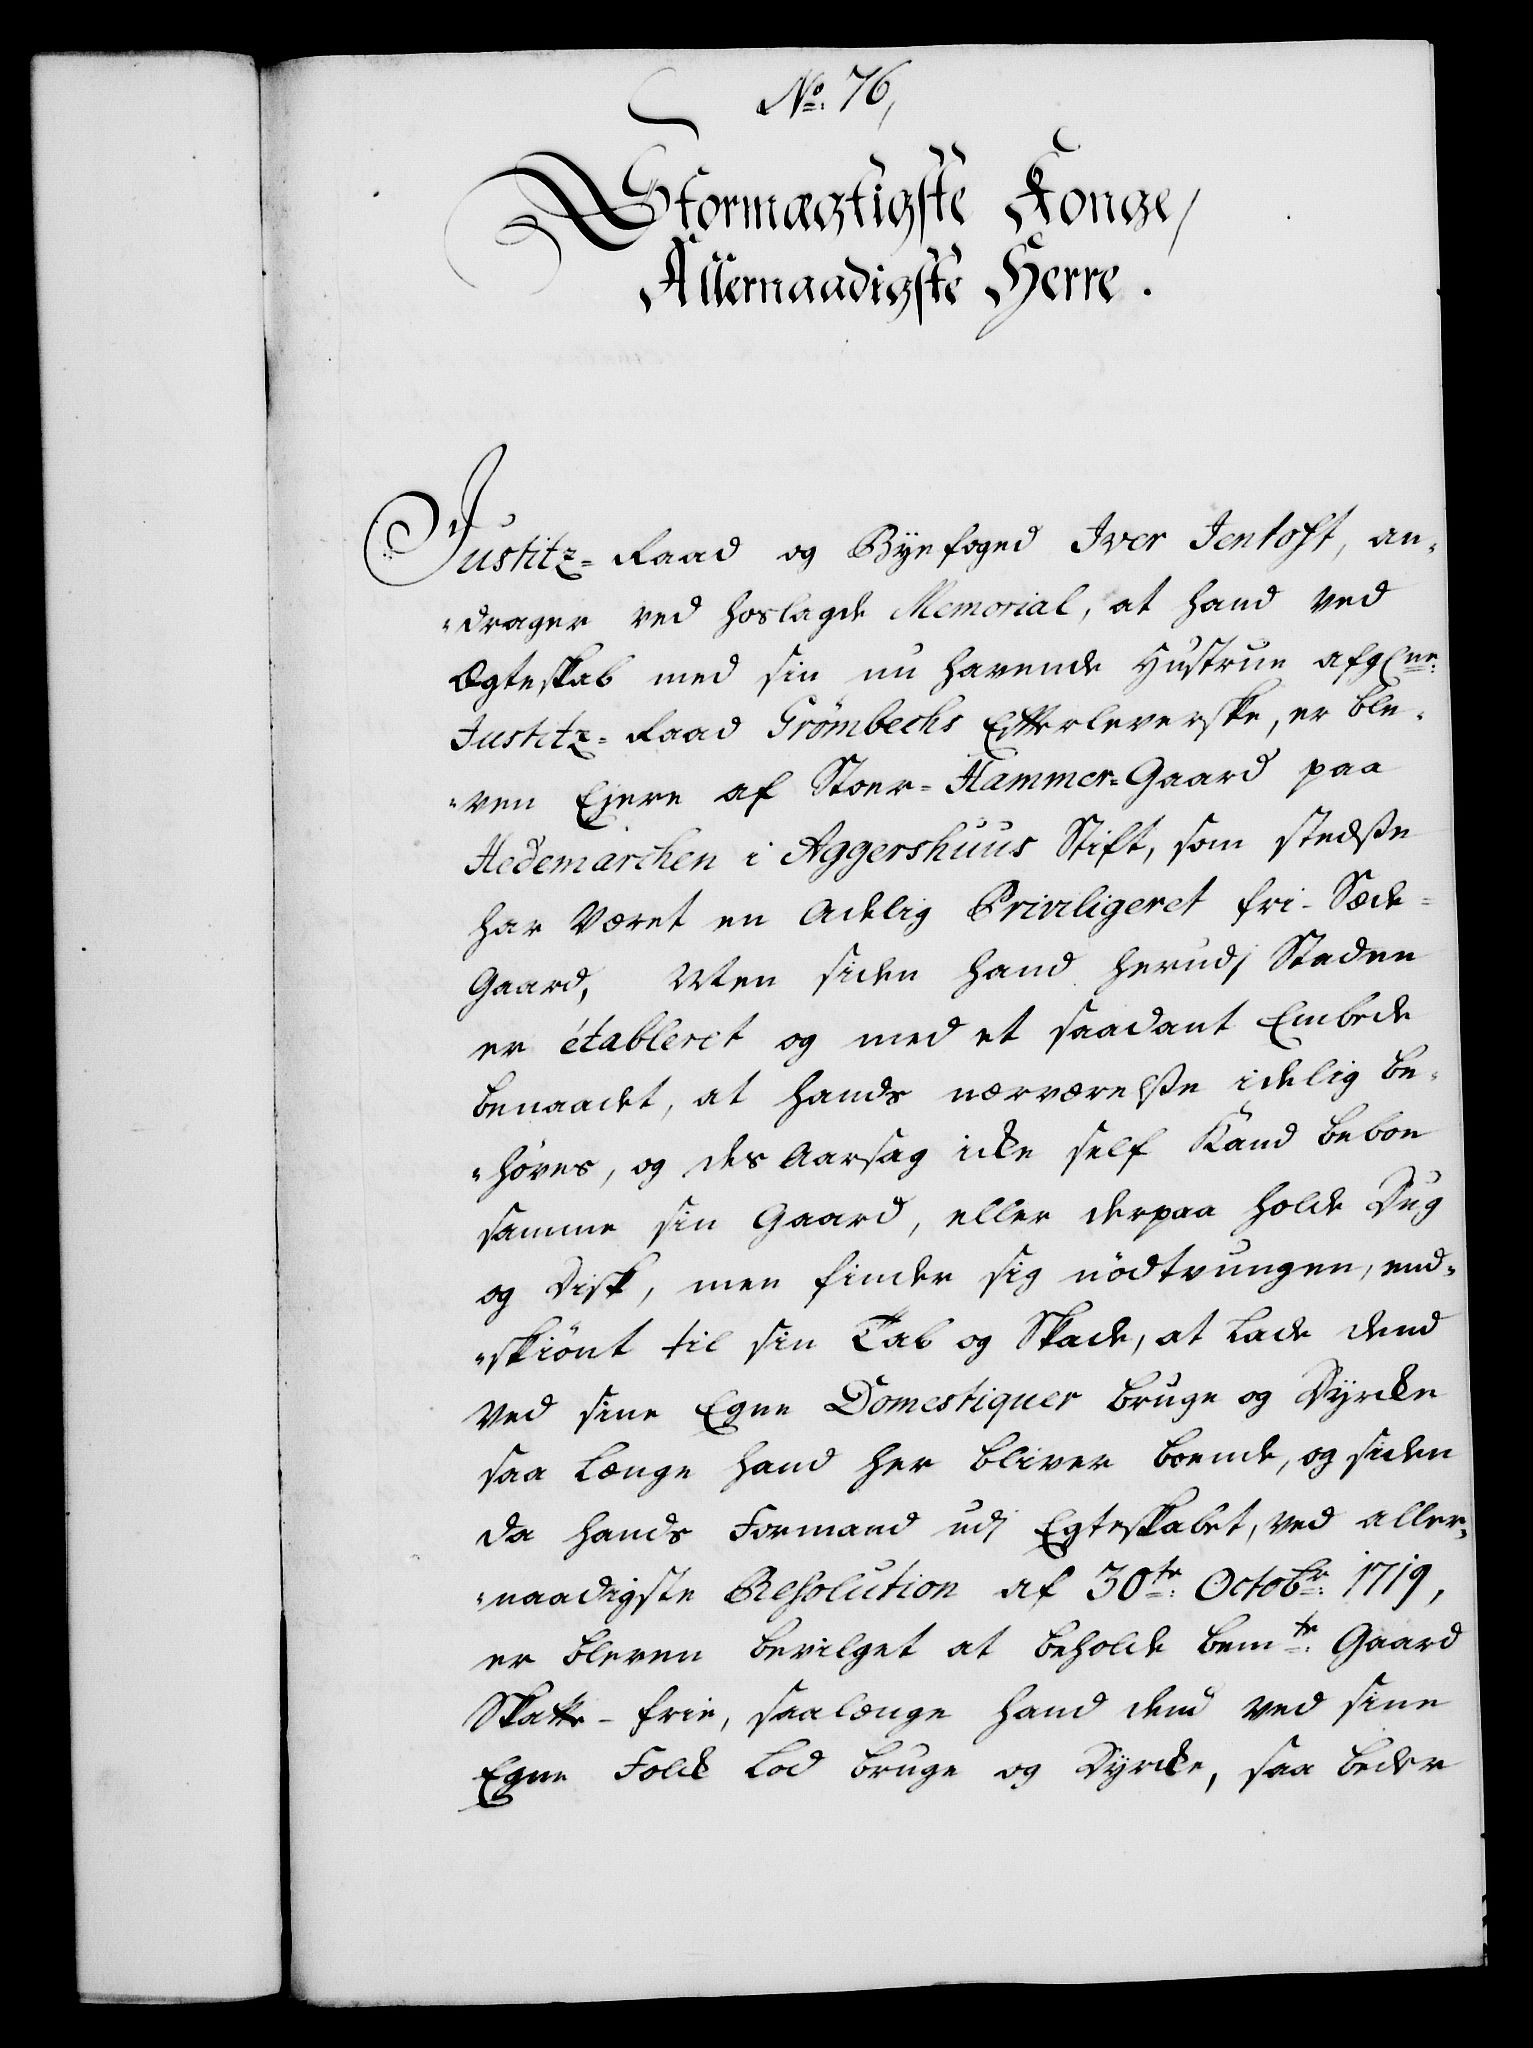 No. 76,
Stormægtigste Konge,
Allernaadigste Herre.
Justitz-Raad og Byefoged Iver Jentoft, an-
-drager ved hoslagde Memorial, at hand ved
Ægteskab med sin nu havende Hustrue afgl.ne:
Justitz-Raad Grömbechs Efterleverske, er ble-
-ven Ejere af Stoer-Hammer-Gaard paa
Hedemarchen i Aggershuus Stift, som stedsse
har været en Adelig Priviligeret fri-Sæde-
Gaard, Men siden hand herudj Staden
er étableret og med et saadant Embede
benaadet, at hands nærværelsse idelig be-
-høves, og des Aarsag icke self Kand beboe
samme sin Gaard, eller derpaa holde Dug
og Disk, men finder sig nödtvungen, end-
-skiönt til sin Tab og Skade, at lade dend
ved sine Egne Domestiquer bruge og Dyrcke
saa længe hand her bliver boende, og siden
da hands Formand udj Egteskabet, ved aller-
-naadigste Resolution af 30te: Octobr: 1719,
er bleven bevilget at beholde bemte: Gaard
Skatte-frie, saalænge hand dend ved sine
Egne Folck lod bruge og Dyrcke, saa beder